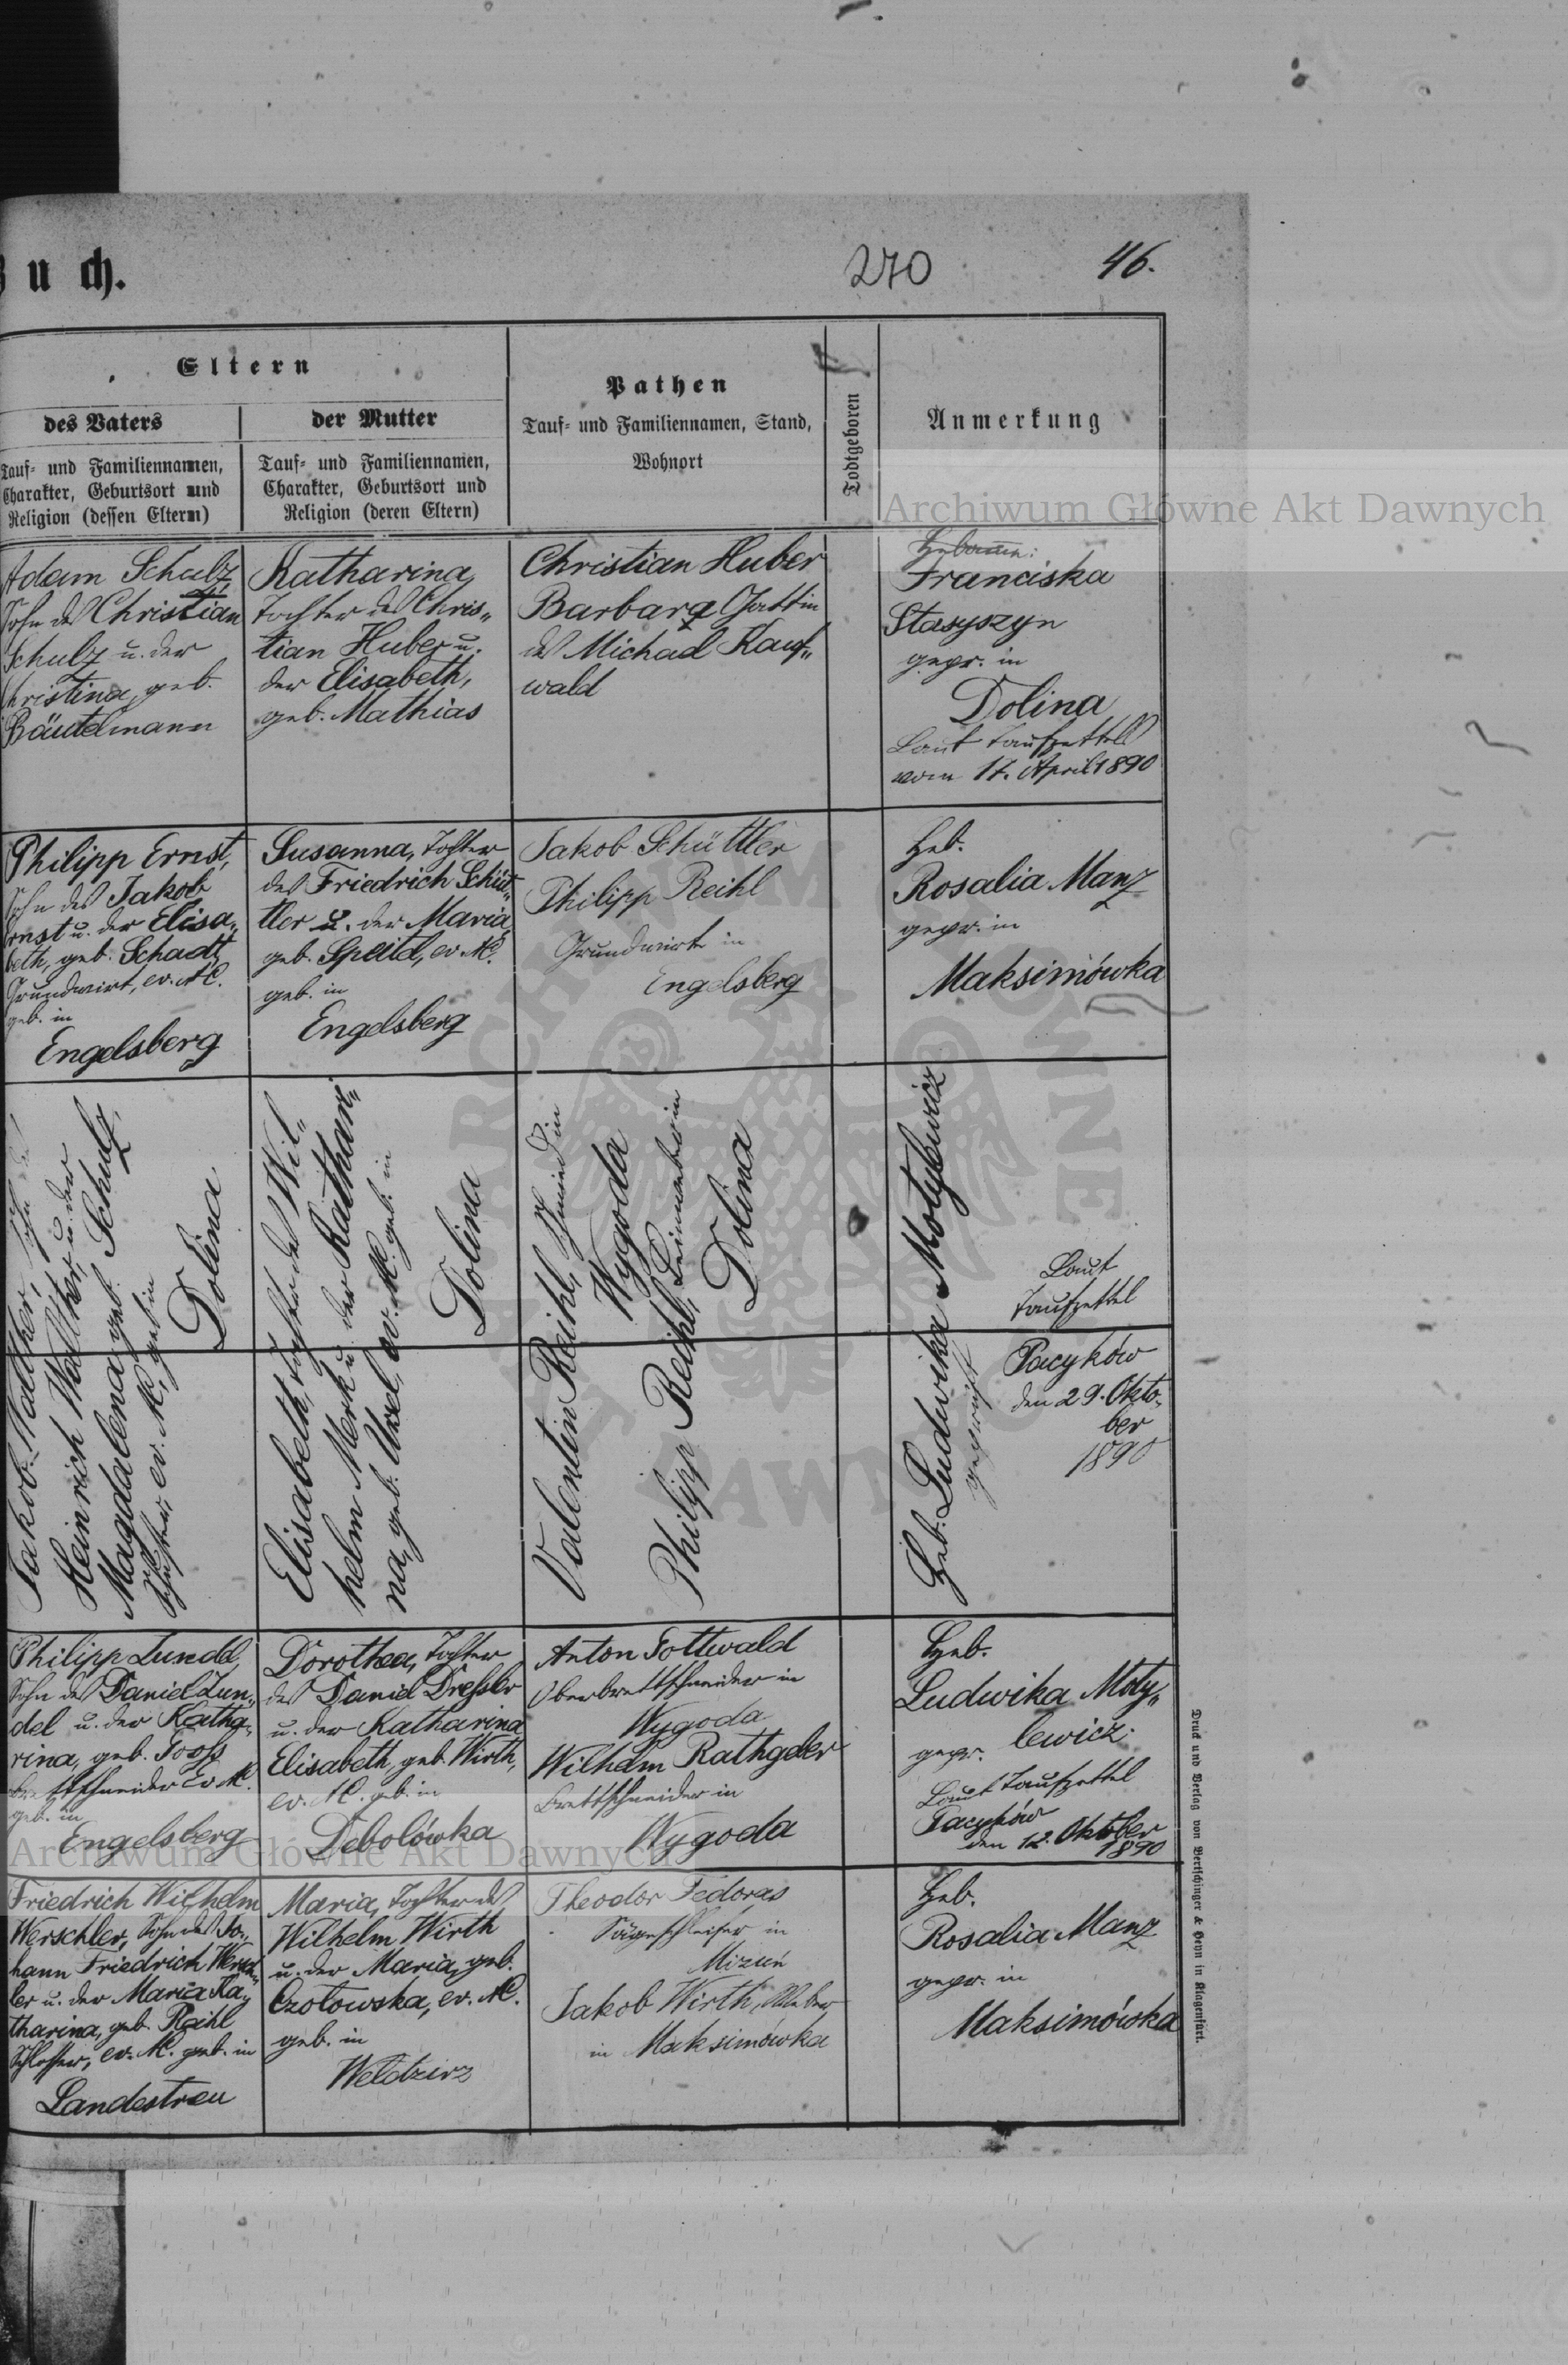 B u ch.
270
46.
Eltern
des Vaters
Tauf- und Familiennamen,
Charakter, Geburtsort und
Religion (dessen Eltern)
der Mutter
Tauf- und Familiennamen,
Charakter, Geburtsort und
Religion (deren Eltern)
Pathen
Tauf- und Familiennamen, Stand,
Wohnort
Todtgeboren
Anmerkung
Archiwum Główne Akt Dawnych
Adam Schulz
Sohn des Christian
Schulz u. der
Christina, geb.
Bäutelmann
Katharina,
Tochter des Chris„
tian Huber u.
der Elisabeth,
geb. Mathias
Christian Huber
Barbara Gattin
des Michael Kauf„
wald
Hebamme:
Franciska
Stasyszyn
gepr. in
Dolina
Laut Taufzettel
vom 17. April 1890
Philipp Ernst,
Sohn des Jakob
Ernst u. der Elisa„
beth, geb. Schadt,
Grundwirt, ev. AC.
geb. in
Engelsberg
Susanna, Tochter
des Friedrich Schüt„
tler u. der Maria,
geb. Speitel, ev. AC.
geb. in
Engelsberg
Jakob Schüttler
Philipp Reihl
Grundwirte in
Engelsberg
Heb.
Rosalia Manz
gepr. in
Maksimówka
Jakob Walther, Sohn des
Heinrich Walther, u. der
Magdalena geb. Schulz,
Schuster, ev. AC, geb. in
Dolina
Elisabeth, Tochter des Wil„
helm Merk u. der Kathari„
na, geb. Usel, ev. AC. geb. in
Dolina
Valentin Reihl, Schmied in
Wygoda
Philipp Reihl, Leinweber in
Dolina
Heb. Ludwika Motylewicz
geprüft
Laut
Taufzettel
Pacyków
den 29. Okto„
ber
1890
Philipp Zundel,
Sohn des Daniel Zun„
del u. der Katha„
rina, geb. Jooss
Brettschneider Ev. AC.
geb. in
Engelsberg
Dorothea, Tochter
des Daniel Dressler
u. der Katharina
Elisabeth, geb. Wirth,
ev. AC. geb. in
Debolówka
Anton Gottwald
Oberbrettschneider in
Wygoda
Wilhelm Rathgeber
Brettschneider in
Wygoda
Heb.
Ludwika Moty„
lewicz
gepr.
Laut Taufzettel
Pacyków
den 12. Oktober
1890
Archiwum Główne Akt Dawnych
Friedrich Wilhelm
Werschler, Sohn des Jo„
hann Friedrich Wersch„
ler u. der Maria Ka„
tharina, geb. Reihl
Schlosser, ev. AC. geb. in
Landestreu
Maria, Tochter des
Wilhelm Wirth
u. der Maria, geb.
Czołowska, ev. AC.
geb. in
Weldzirz
Theodor Fedoras
Sägeschleifer in
Mizuń
Jakob Wirth, Weber
in Maksimówka
Heb.
Rosalia Manz
gepr. in
Maksimówka
Druck und Verlag von Bertschinger & Heyn in Klagenfurt.